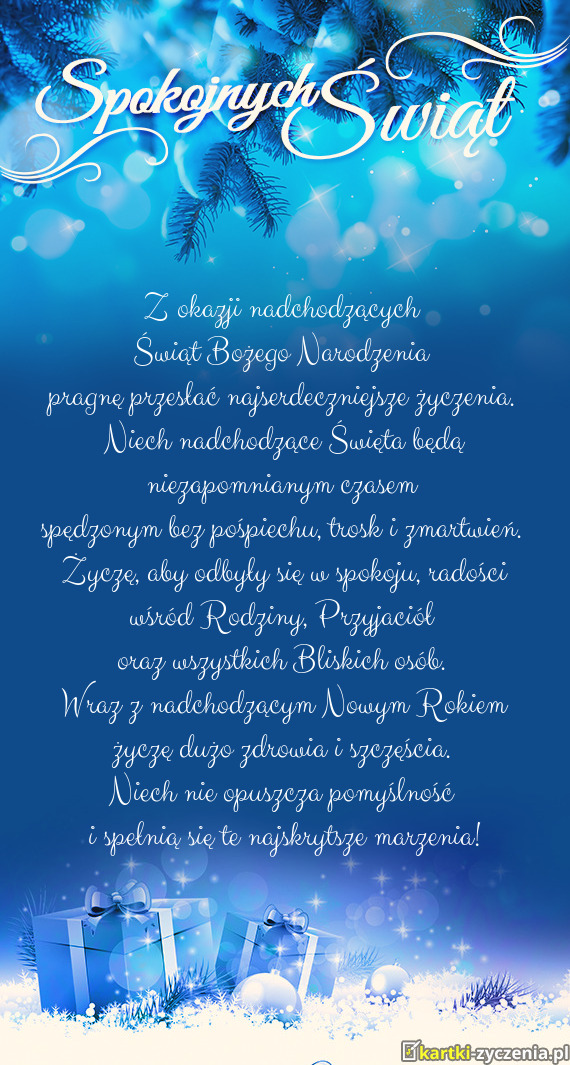 Spokojnych Świąt
Z okazji nadchodzących
Świąt Bożego Narodzenia
pragnę przesłać najserdeczniejsze życzenia.
Niech nadchodzące Święta będą
niezapomnianym czasem
spędzonym bez pośpiechu, trosk i zmartwień.
Życzę, aby odbyły się w spokoju, radości
wśród Rodziny, Przyjaciół
oraz wszystkich Bliskich osób.
Wraz z nadchodzącym Nowym Rokiem
życzę dużo zdrowia i szczęścia.
Niech nie opuszcza pomyślność
i spełnią się te najskrytsze marzenia!
kartki-zyczenia.pl